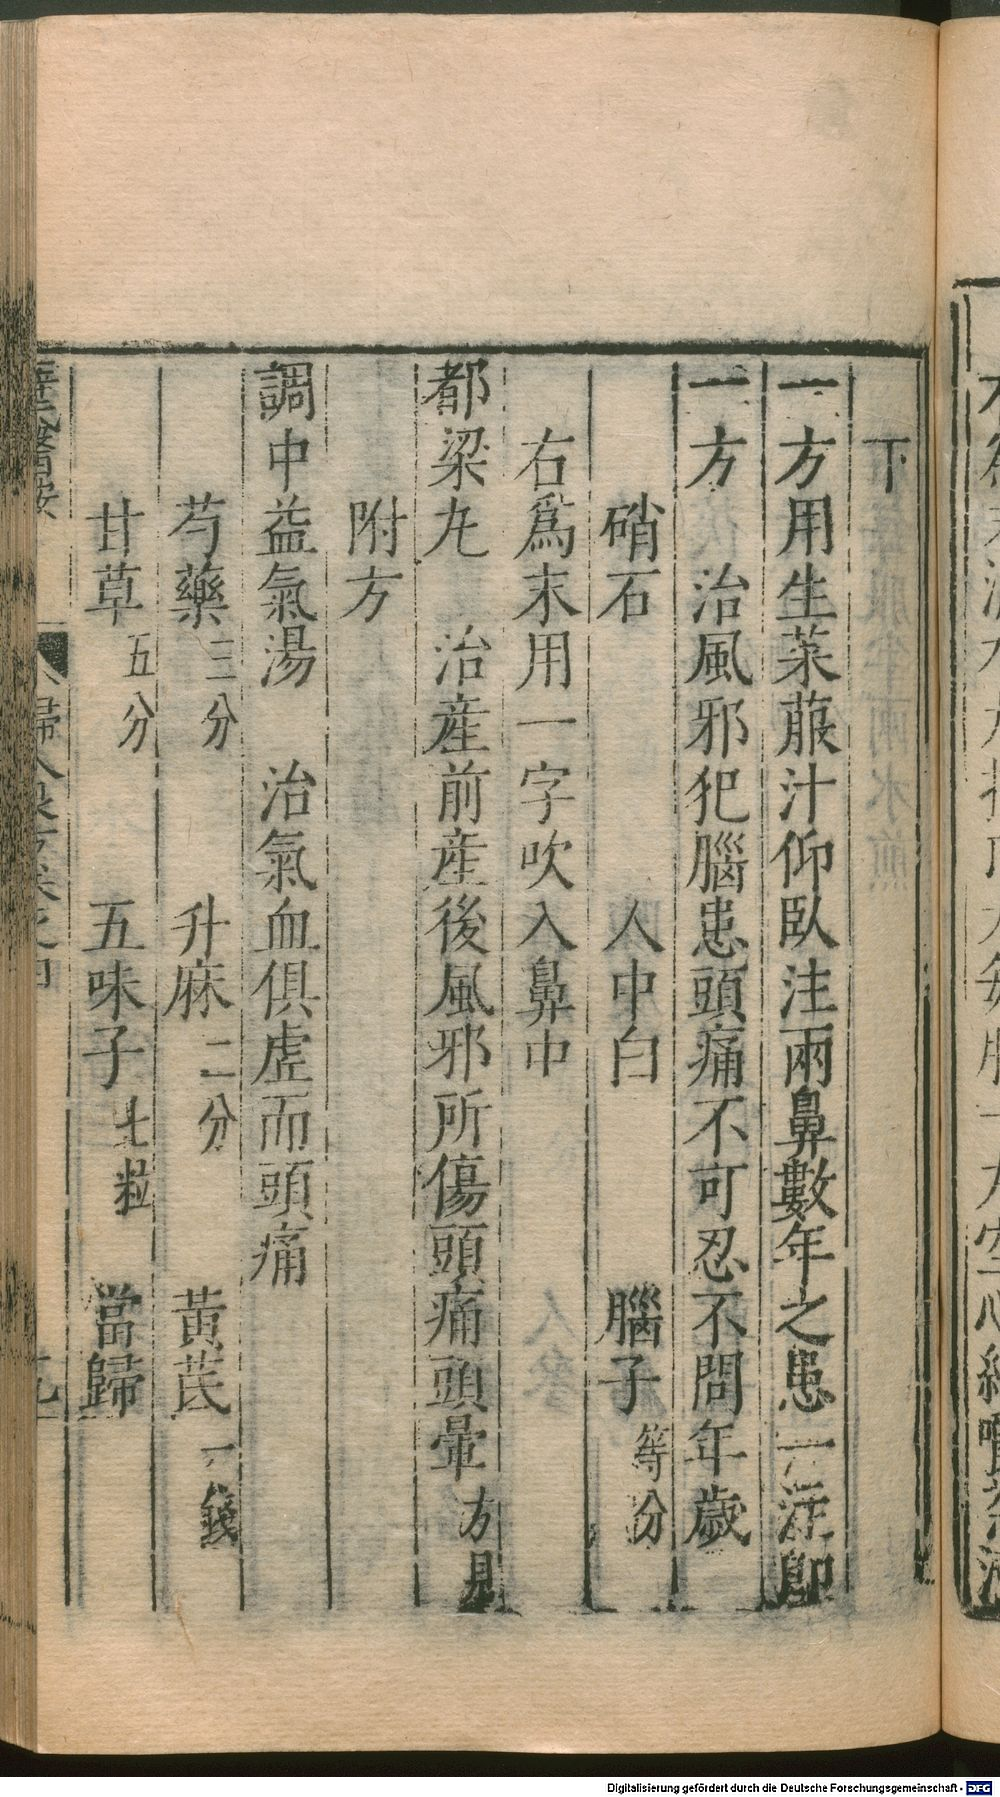 下
一方用生萊菔汁仰臥注兩鼻數年之患一注即
一方　治風邪犯腦患頭痛不可忍不問年歲
硝石　人中白　腦子等分
右爲末用一字吹入鼻中
都梁丸　治產前產後風邪所傷頭痛頭暈方見
附方
調中益氣湯　治氣血俱虛而頭痛
芍藥三分　升麻二分　黃芪一錢
甘草五分　五味子七粒　當歸
Digitalisierung gefördert durch die Deutsche Forschungsgemeinschaft - DFG